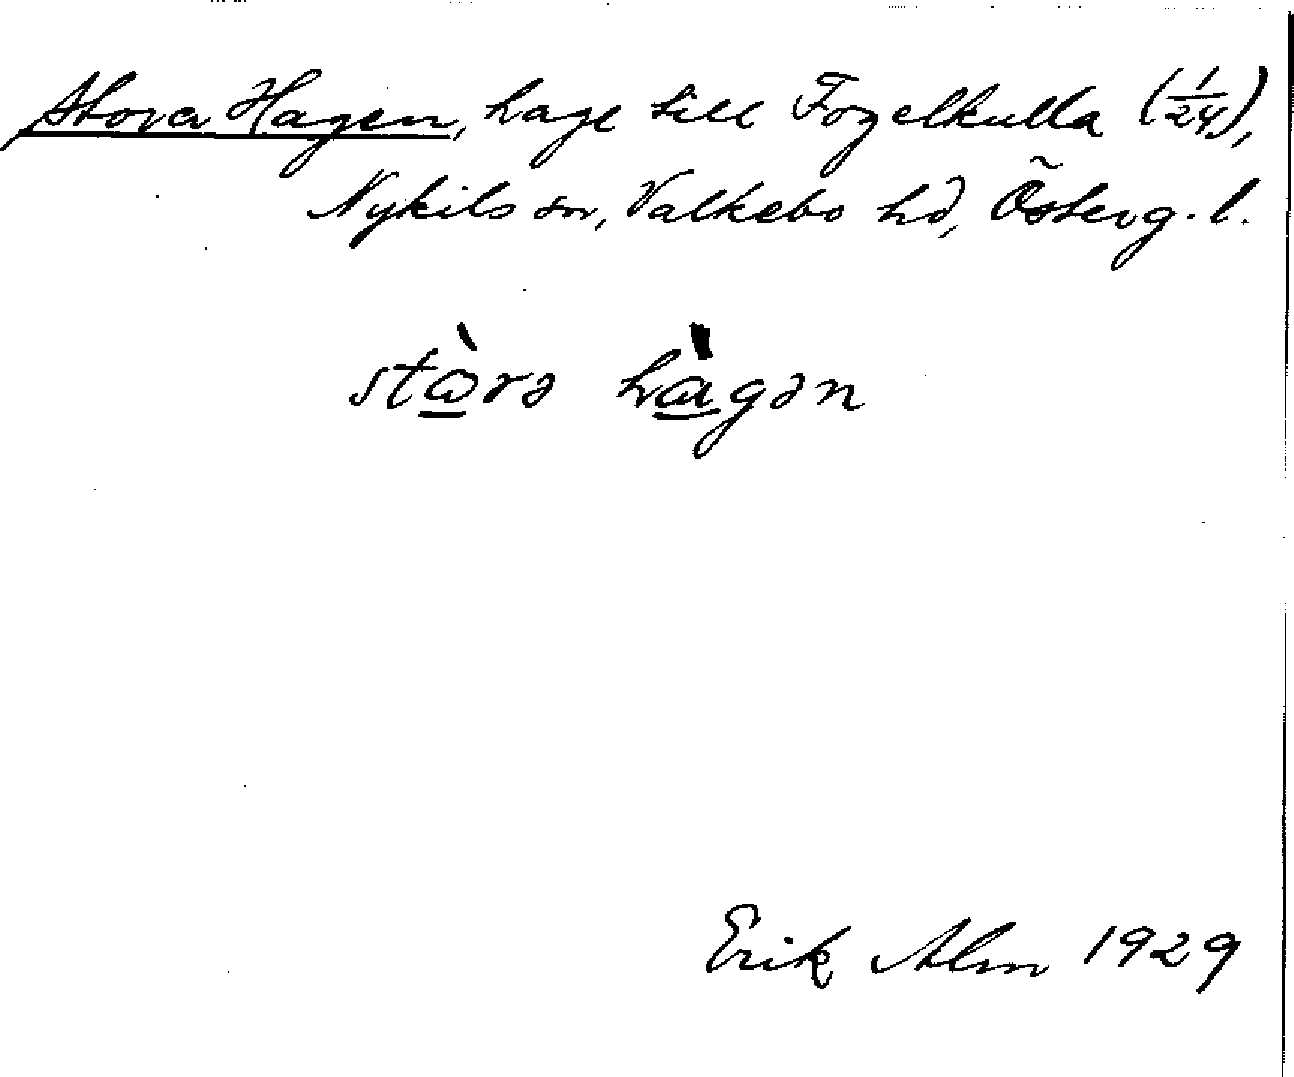 Stora Hagen, hage till Fogelkulla (1/24),
Nykils sn, Valkebo hd, Österg. l.
stὼ̲rə hɑ̲̀gən
Erik Alm 1929